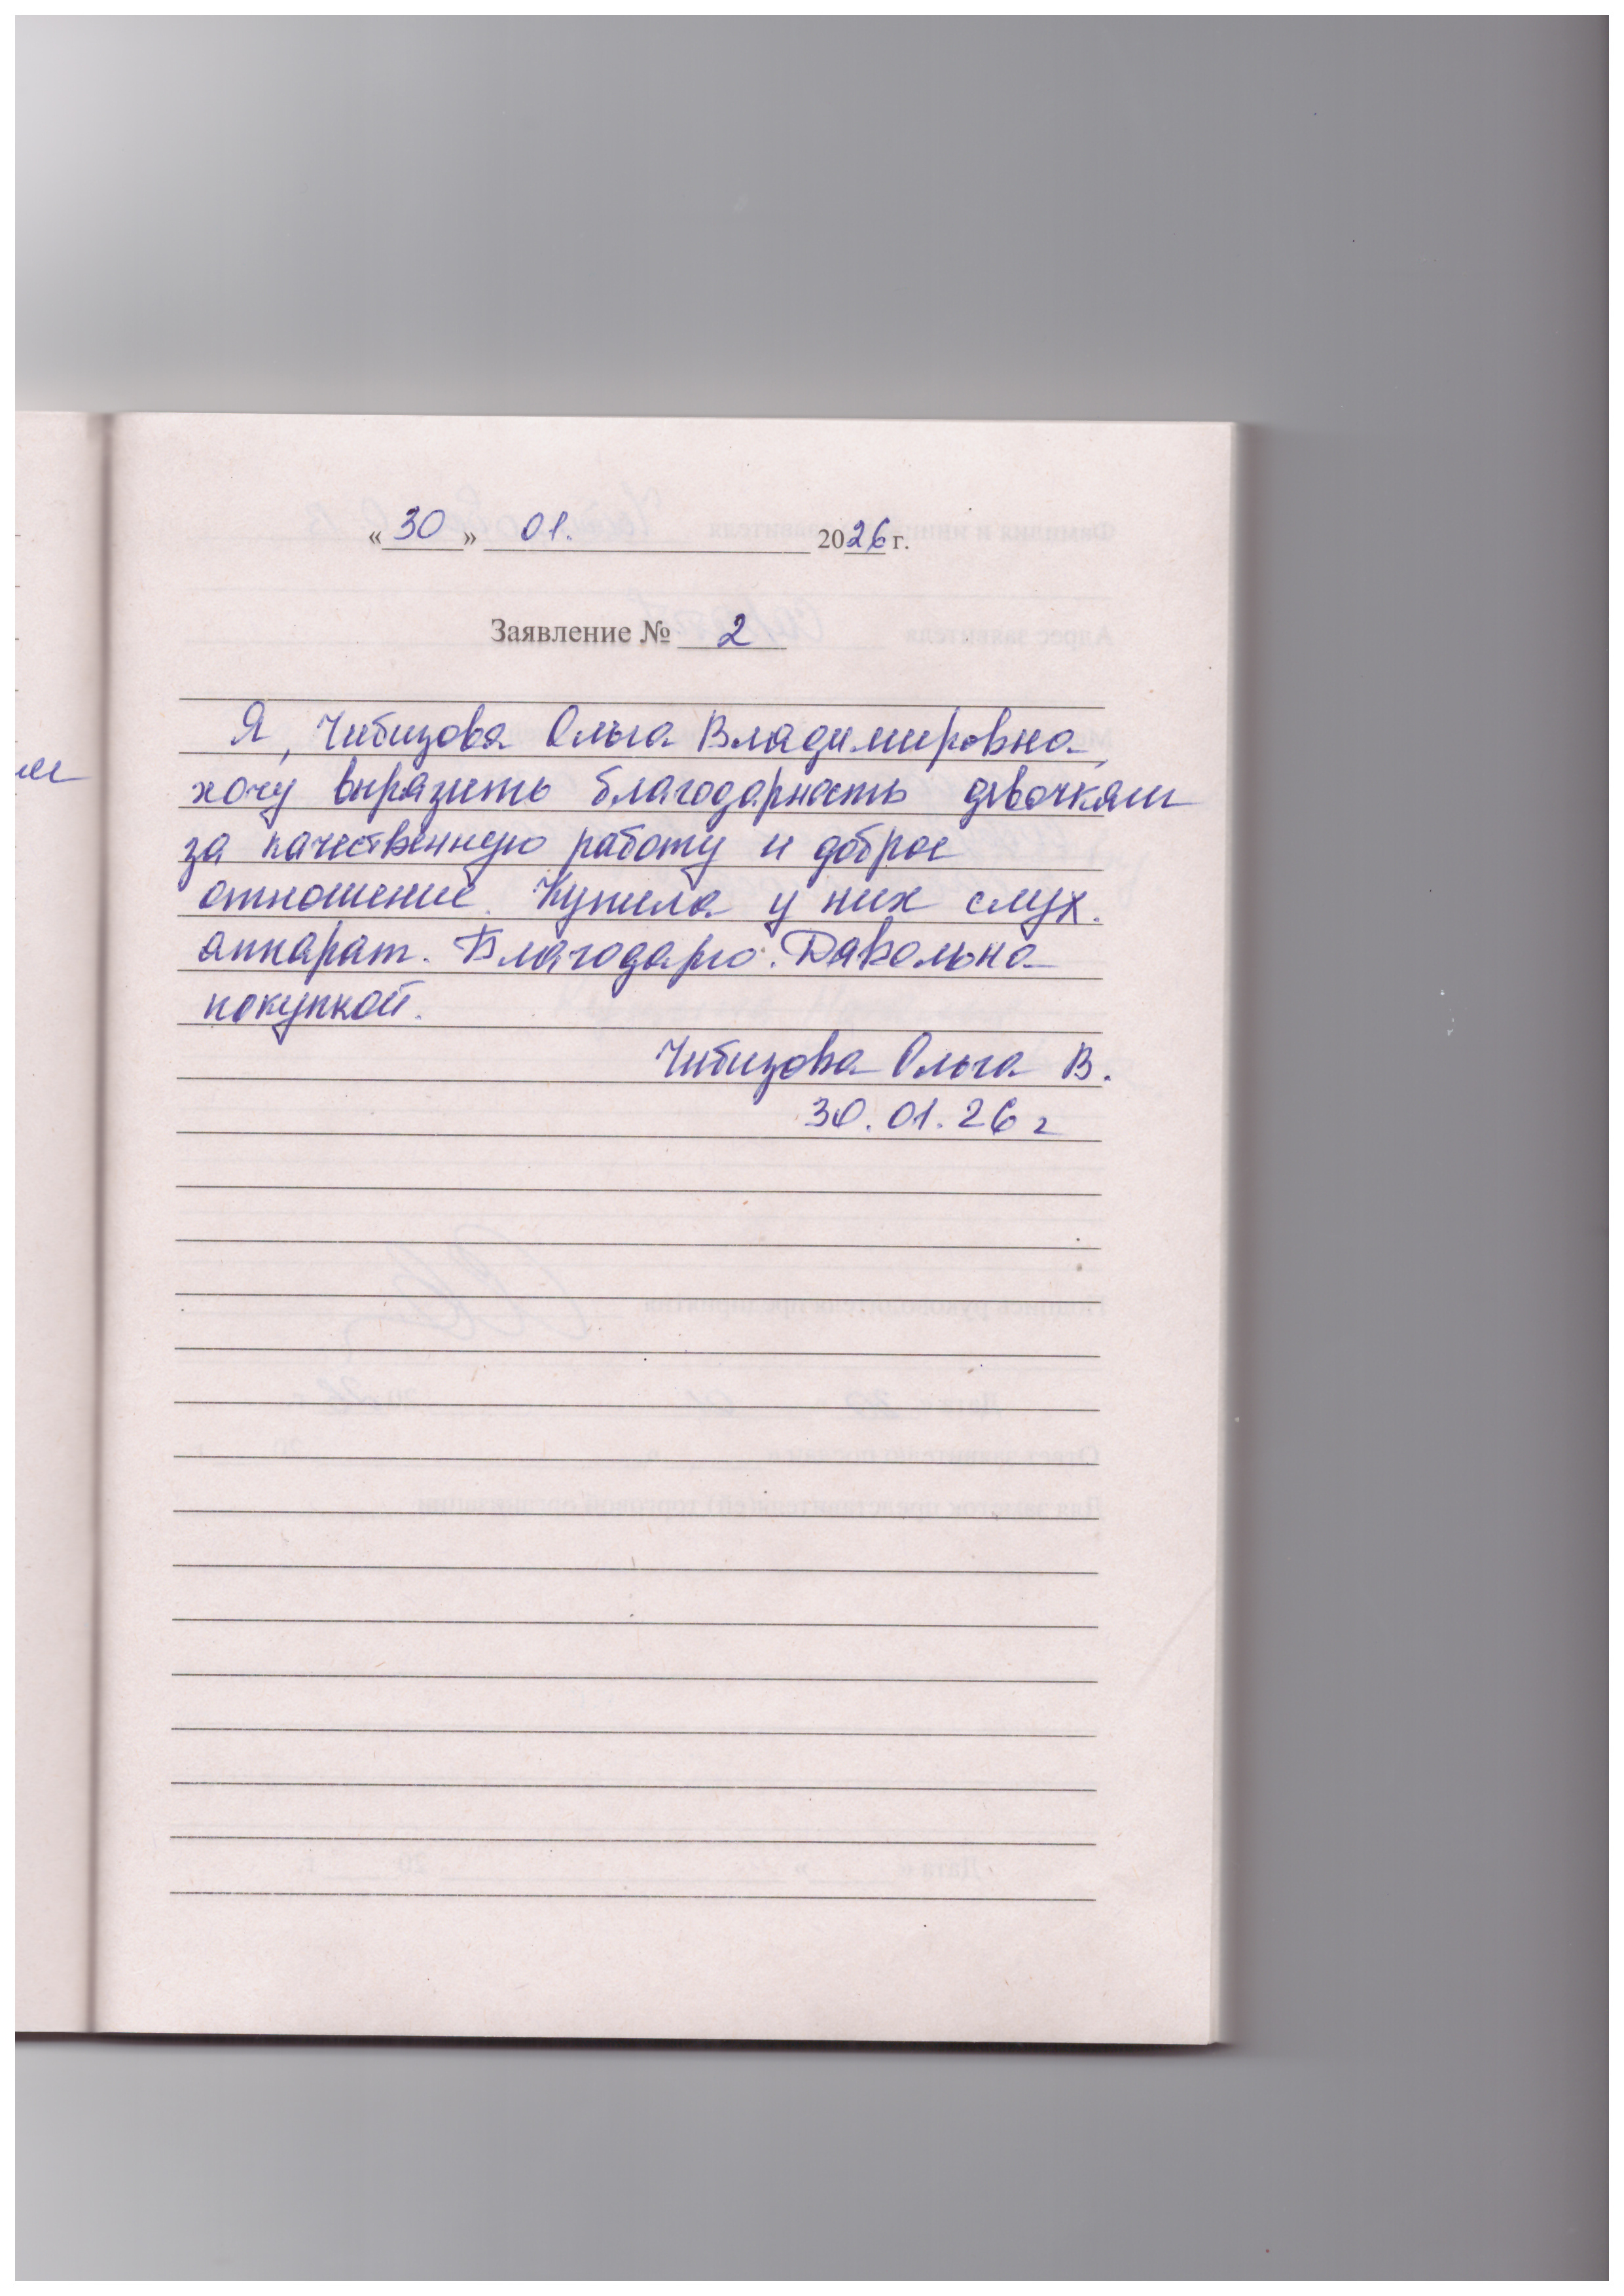 «30» 01. 2026 г.
Заявление № 2
Я, Чибизова Ольга Владимировна,
хочу выразить благодарность девочкам
за качественную работу и доброе
отношение. Купила у них слух.
аппарат. Благодарю. Давольна
покупкой.
Чибизова Ольга В.
30.01.26 г